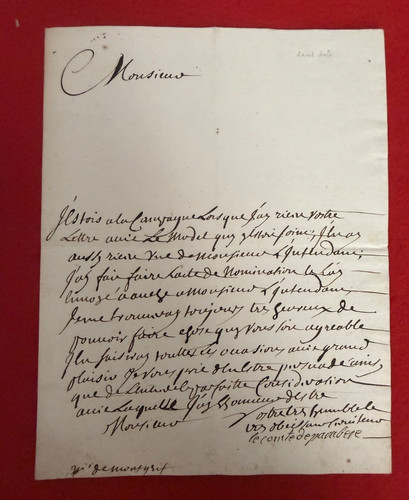 Monsieur
J'estois a la Campagne Lorsque J'ay receu vostre
Lettre avec Le Model quy y estoit Joint, J'en ay
aussy receu une de monsieur L'Intendant,
J'ay fait faire L'acte de Nomination et L'ay
Envoyé à monsieur L'Intendant,
Je me trouveray toujours tres heureux de
pouvoir faire chose quy vous soit agreable
En saisiray toutes les occasions avec grand
plaisir Je vous prie d'en Estre persuadé ainsy
que de la parfaite Consideration
avec Laquelle J'ay L'honneur d'estre
Monsieur
vostre tres humble et
tres obeissant serviteur
le comte de